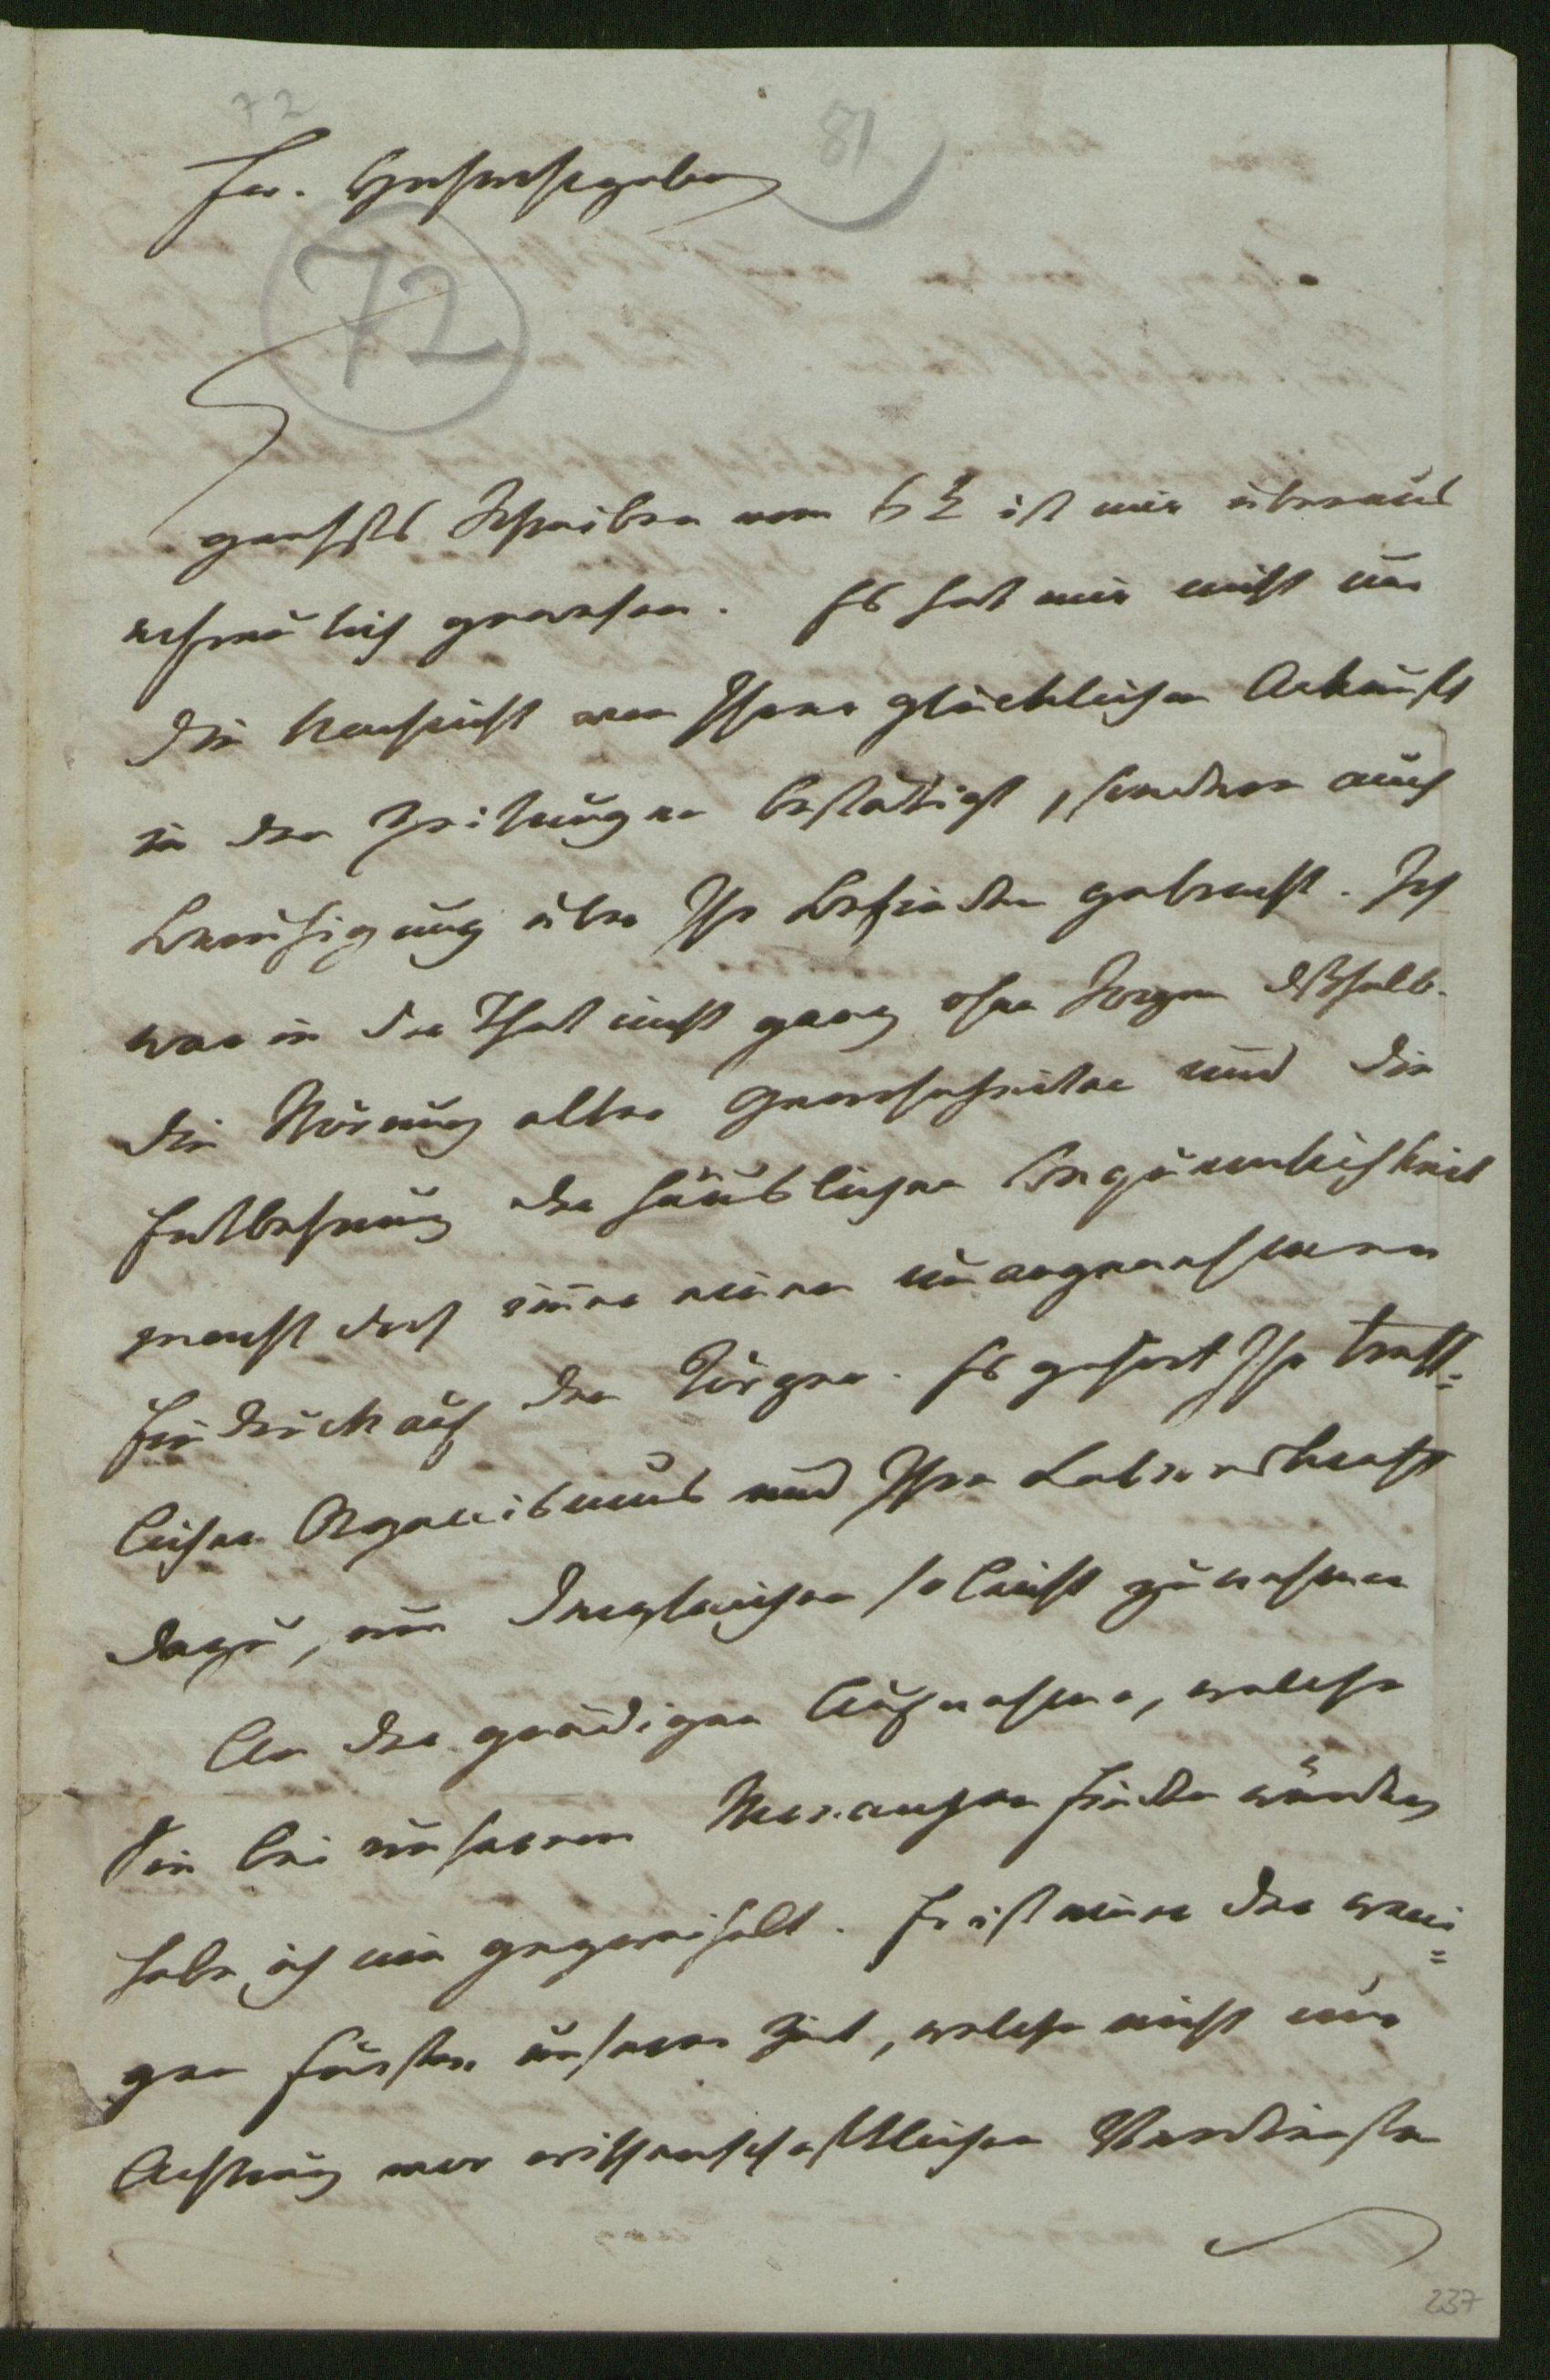 72
81
Ew. Hochwohlgeboren
72
geehrtes Schreiben vom 6/2 ist mir überaus
erfreulich gewesen. Es hat mir nicht nur
die Nachricht von Ihrer glücklichen Ankunft
in den Zeitungen bestättigt, sondern auch
Beruhigung über Ihr Befinden gebracht. Ich
war in der That nicht ganz ohne Sorgen deßhalb.
Die Störung alter Gewohnheiten und die
Entbehrung der häuslichen Bequemlichkeit
macht doch immer einen unangenehmen
Eindruck auf den Körper. Es gehört Ihr treff¬
licher Organismus und Ihre Lebenskraft
dazu, um dergleichen so leicht zu nehmen
An der gnädigen Aufnahme, welche
Sie bei unserem Monarchen finden würden
habe ich nie gezweifelt. Er ist einer der weni¬
gen Fürsten unserer Zeit, welche nicht nur
Achtung vor wissenschaftlichen Verdiensten
237